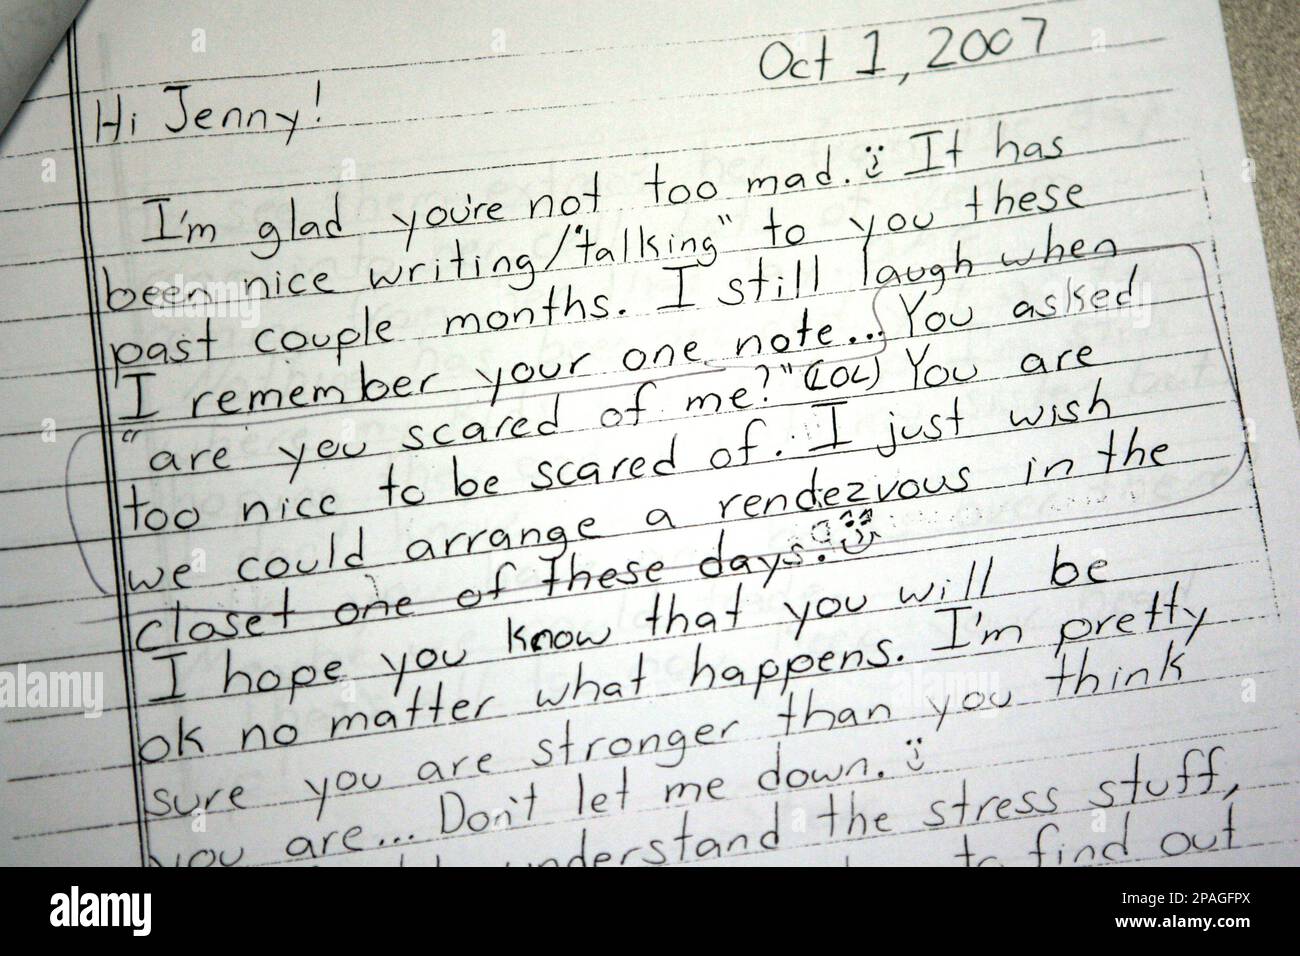 Oct 1, 2007
Hi Jenny!
I'm glad you're not too mad. It has
been nice writing/"talking" to you these
past couple months. I still laugh when
I remember your one note... You asked
"are you scared of me?" (LOL) You are
too nice to be scared of. I just wish
we could arrange a rendezvous in the
closet one of these days.
I hope you know that you will be
ok no matter what happens. I'm pretty
sure you are stronger than you think
you are... Don't let me down.
understand the stress stuff,
to find out
alamy
Image ID: 2PAGFPX
www.alamy.com